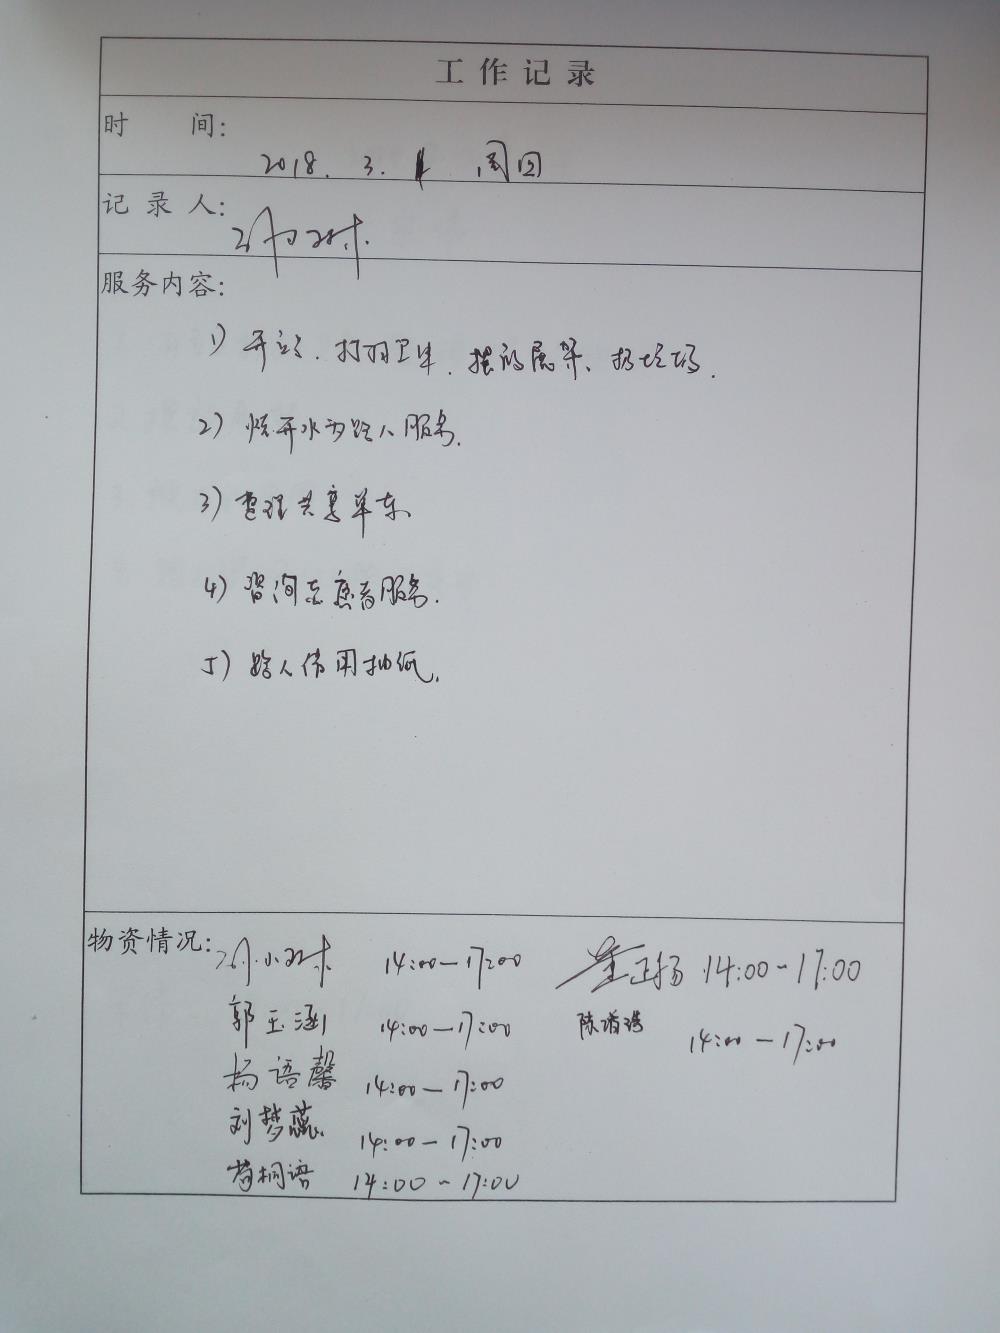 工作记录
时 间:
2018. 3. 1 周四
记录人:
服务内容:
1) 开站、打扫卫生、摆放展架、扔垃圾.
2) 烧开水为路人服务.
3) 整理共享单车、
4) 咨询志愿者服务.
5) 路人借用抽纸.
物资情况: 14:00—17:00 14:00~17:00
郭玉涵 14:00—17:00 陈 14:00—17:00
杨语馨 14:00—17:00
刘梦蕊 14:00—17:00
桐语 14:00~17:00